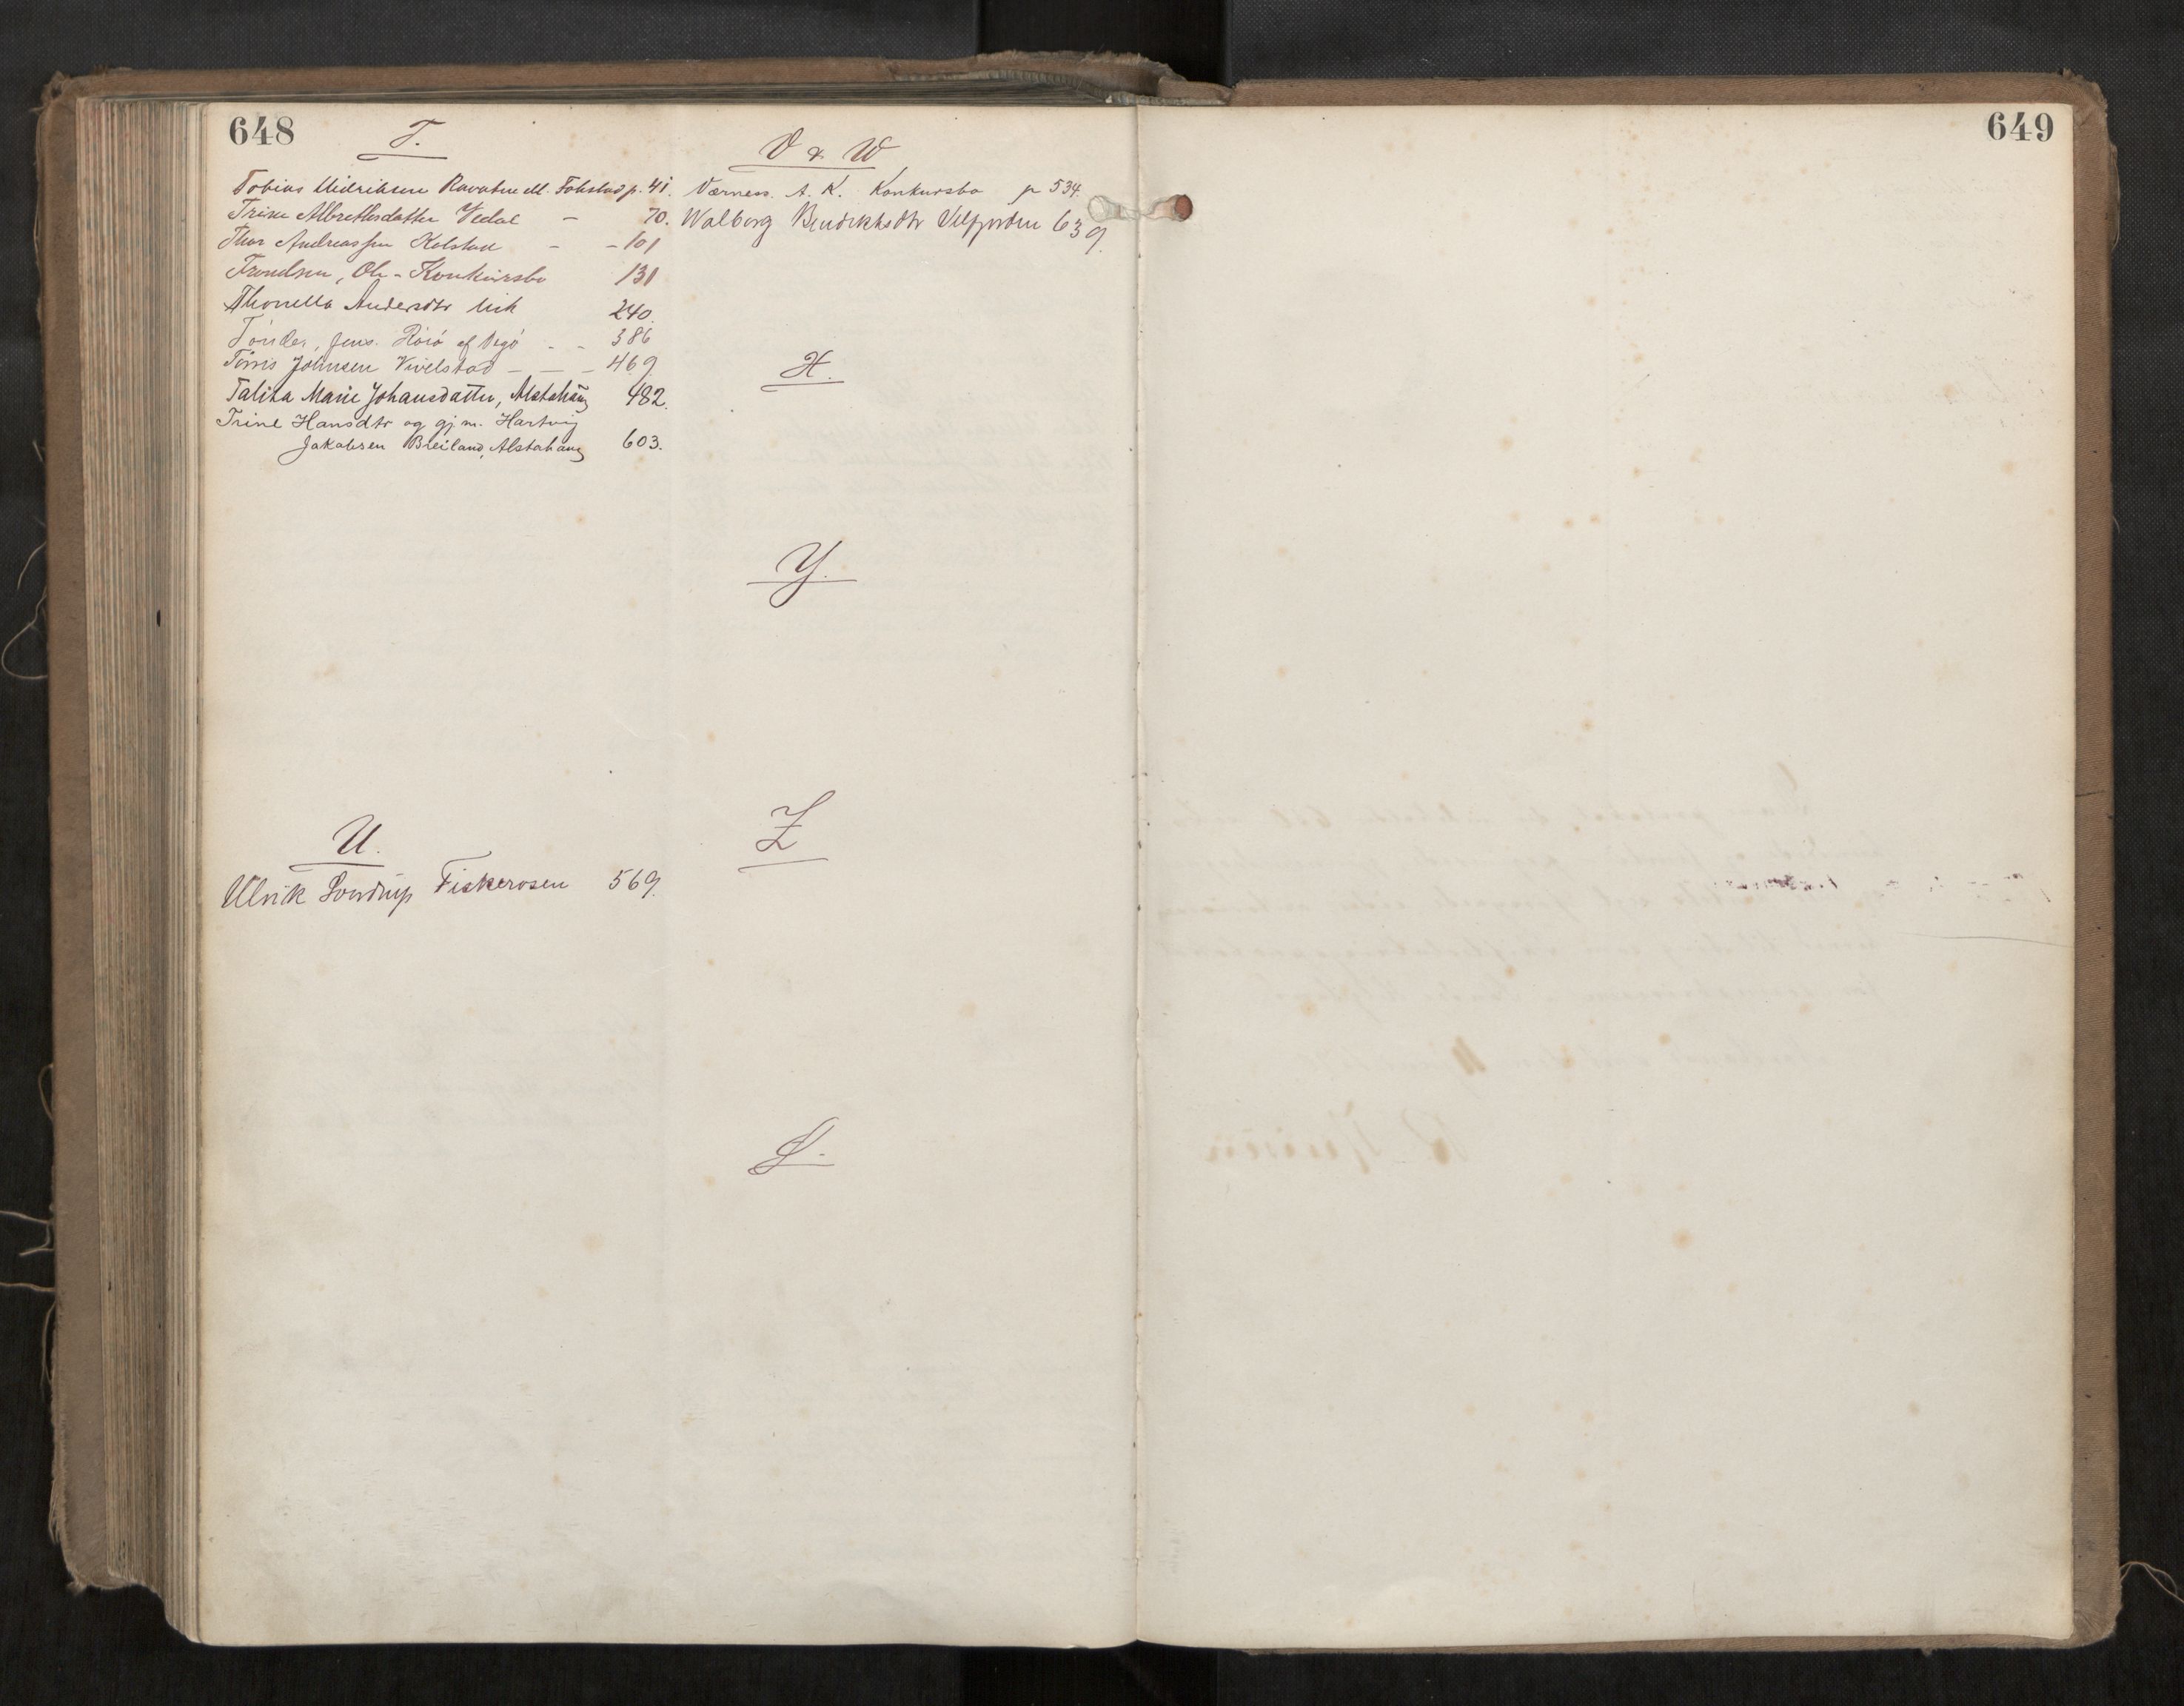 648
T.
Tobias p. 41.
Trine Albrethsdatter Vedal - 70.
Thor Andreassen Kolstad - - 101
Trondsen, Ole - Konkursbo 131
Thonella Andersdtr 240.
Tönder, Jens. Rörö af Vegö - - 386
Tørris Johnsen Vivelstad - - - 469
Talita Marie Johansdatter, Alstahaug 482.
Trine Hansdtr og gj m. Hartvig
Jakobsen Breiland, Alstahaug 603.
U.
Ulrik Sondrup Fiskerosen 569.
V & W
Værness. A. K. Konkursbo p 534
Walborg Bendikhsdtr Velfjorden 639.
X.
Y.
Z
Ø.
649